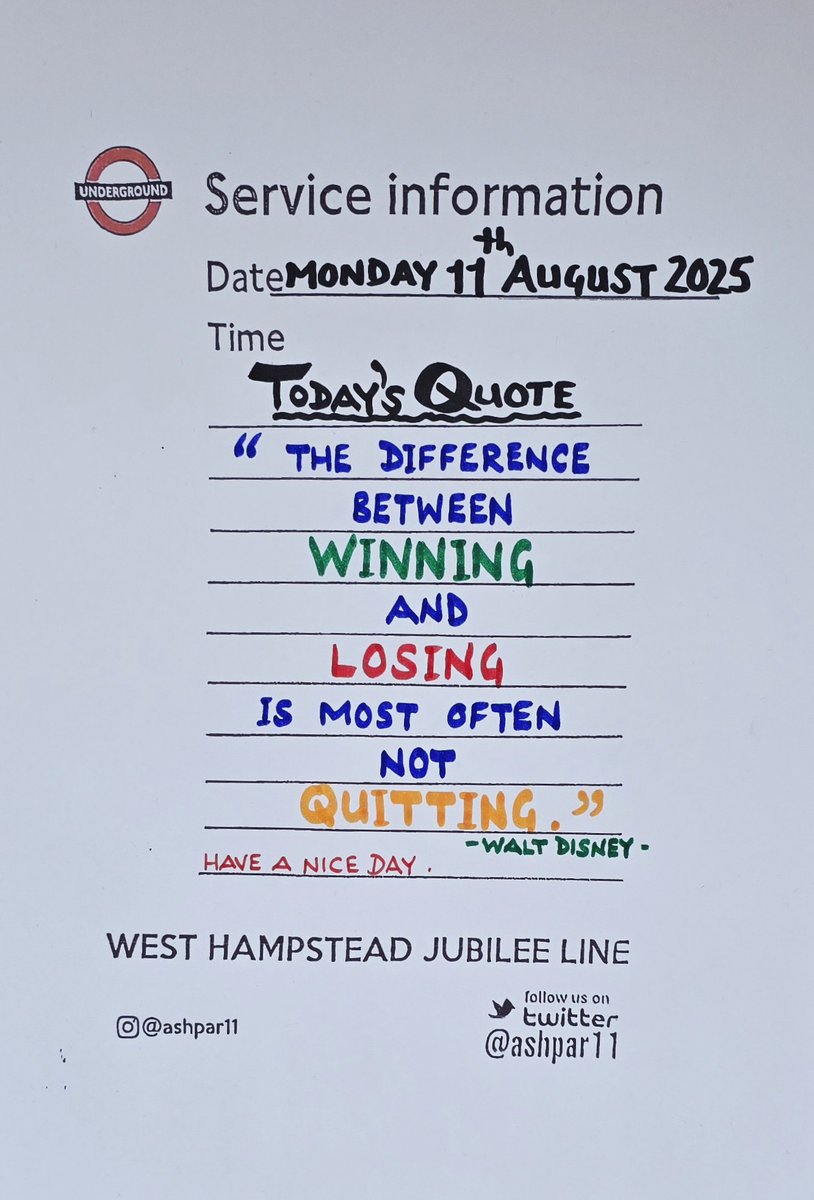 UNDERGROUND
Service information
Date MONDAY 11th AUGUST 2025
Time
TODAY'S QUOTE
“ THE DIFFERENCE
BETWEEN
WINNING
AND
LOSING
IS MOST OFTEN
NOT
QUITTING.”
-WALT DISNEY-
HAVE A NICE DAY.
WEST HAMPSTEAD JUBILEE LINE
@ashpar11
follow us on
twitter
@ashpar11